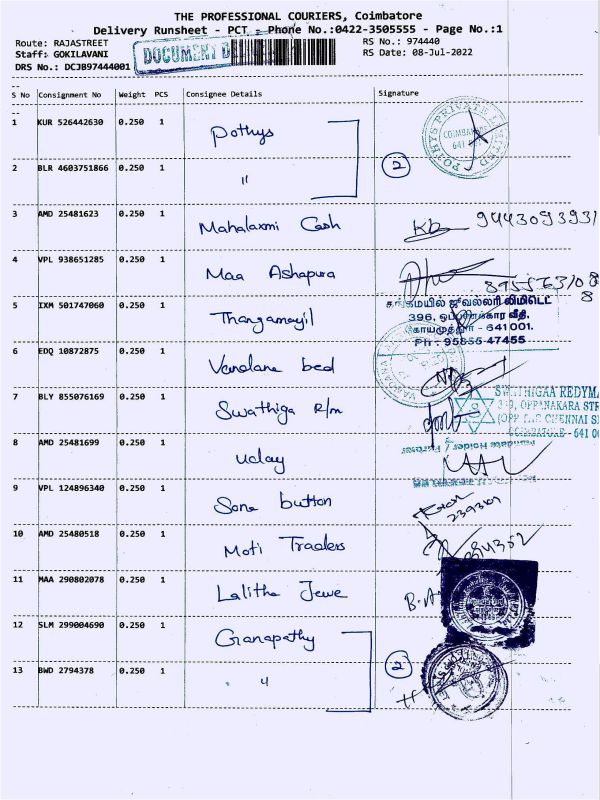 THE PROFESSIONAL COURIERS, Coimbatore
Delivery Runsheet - PCT - Phone No.:0422-3505555 - Page No.:1
Route: RAJASTREET RS No.: 974440
Staff: GOKILAVANI DOCUMENT RS Date: 08-Jul-2022
DRS No.: DCJB97444001
S No Consignment No Weight PCS Consignee Details Signature
1 KUR 526442630 0.250 1 Pothys
POTHYS PRIVATE LIMITED
COIMBATORE
641
2 BLR 4603751866 0.250 1 " 2
3 AMD 25481623 0.250 1 Mahalaxmi Cash 9443093931
4 VPL 938651285 0.250 1 Maa Ashapura
5 IXM 501747060 0.250 1 Thangamayil
ஜுவல்லரி லிமிடெட்
396, ஒப்பணக்கார வீதி,
641001.
Ph : 95855 47455
6 EDQ 10872875 0.250 1 Vandana bed
7 BLY 855076169 0.250 1 Swathiga R/m
SWATHIGAA REDYMA
OPPANAKARA STR
CHENNAI S
COIMBATORE - 641 00
8 AMD 25481699 0.250 1 uday
9 VPL 124896340 0.250 1 Sona button
10 AMD 25480518 0.250 1 Moti Traders
11 MAA 290802078 0.250 1 Lalitha Jewe
12 SLM 299004690 0.250 1 Ganapathy
13 BWD 2794378 0.250 1 " 2